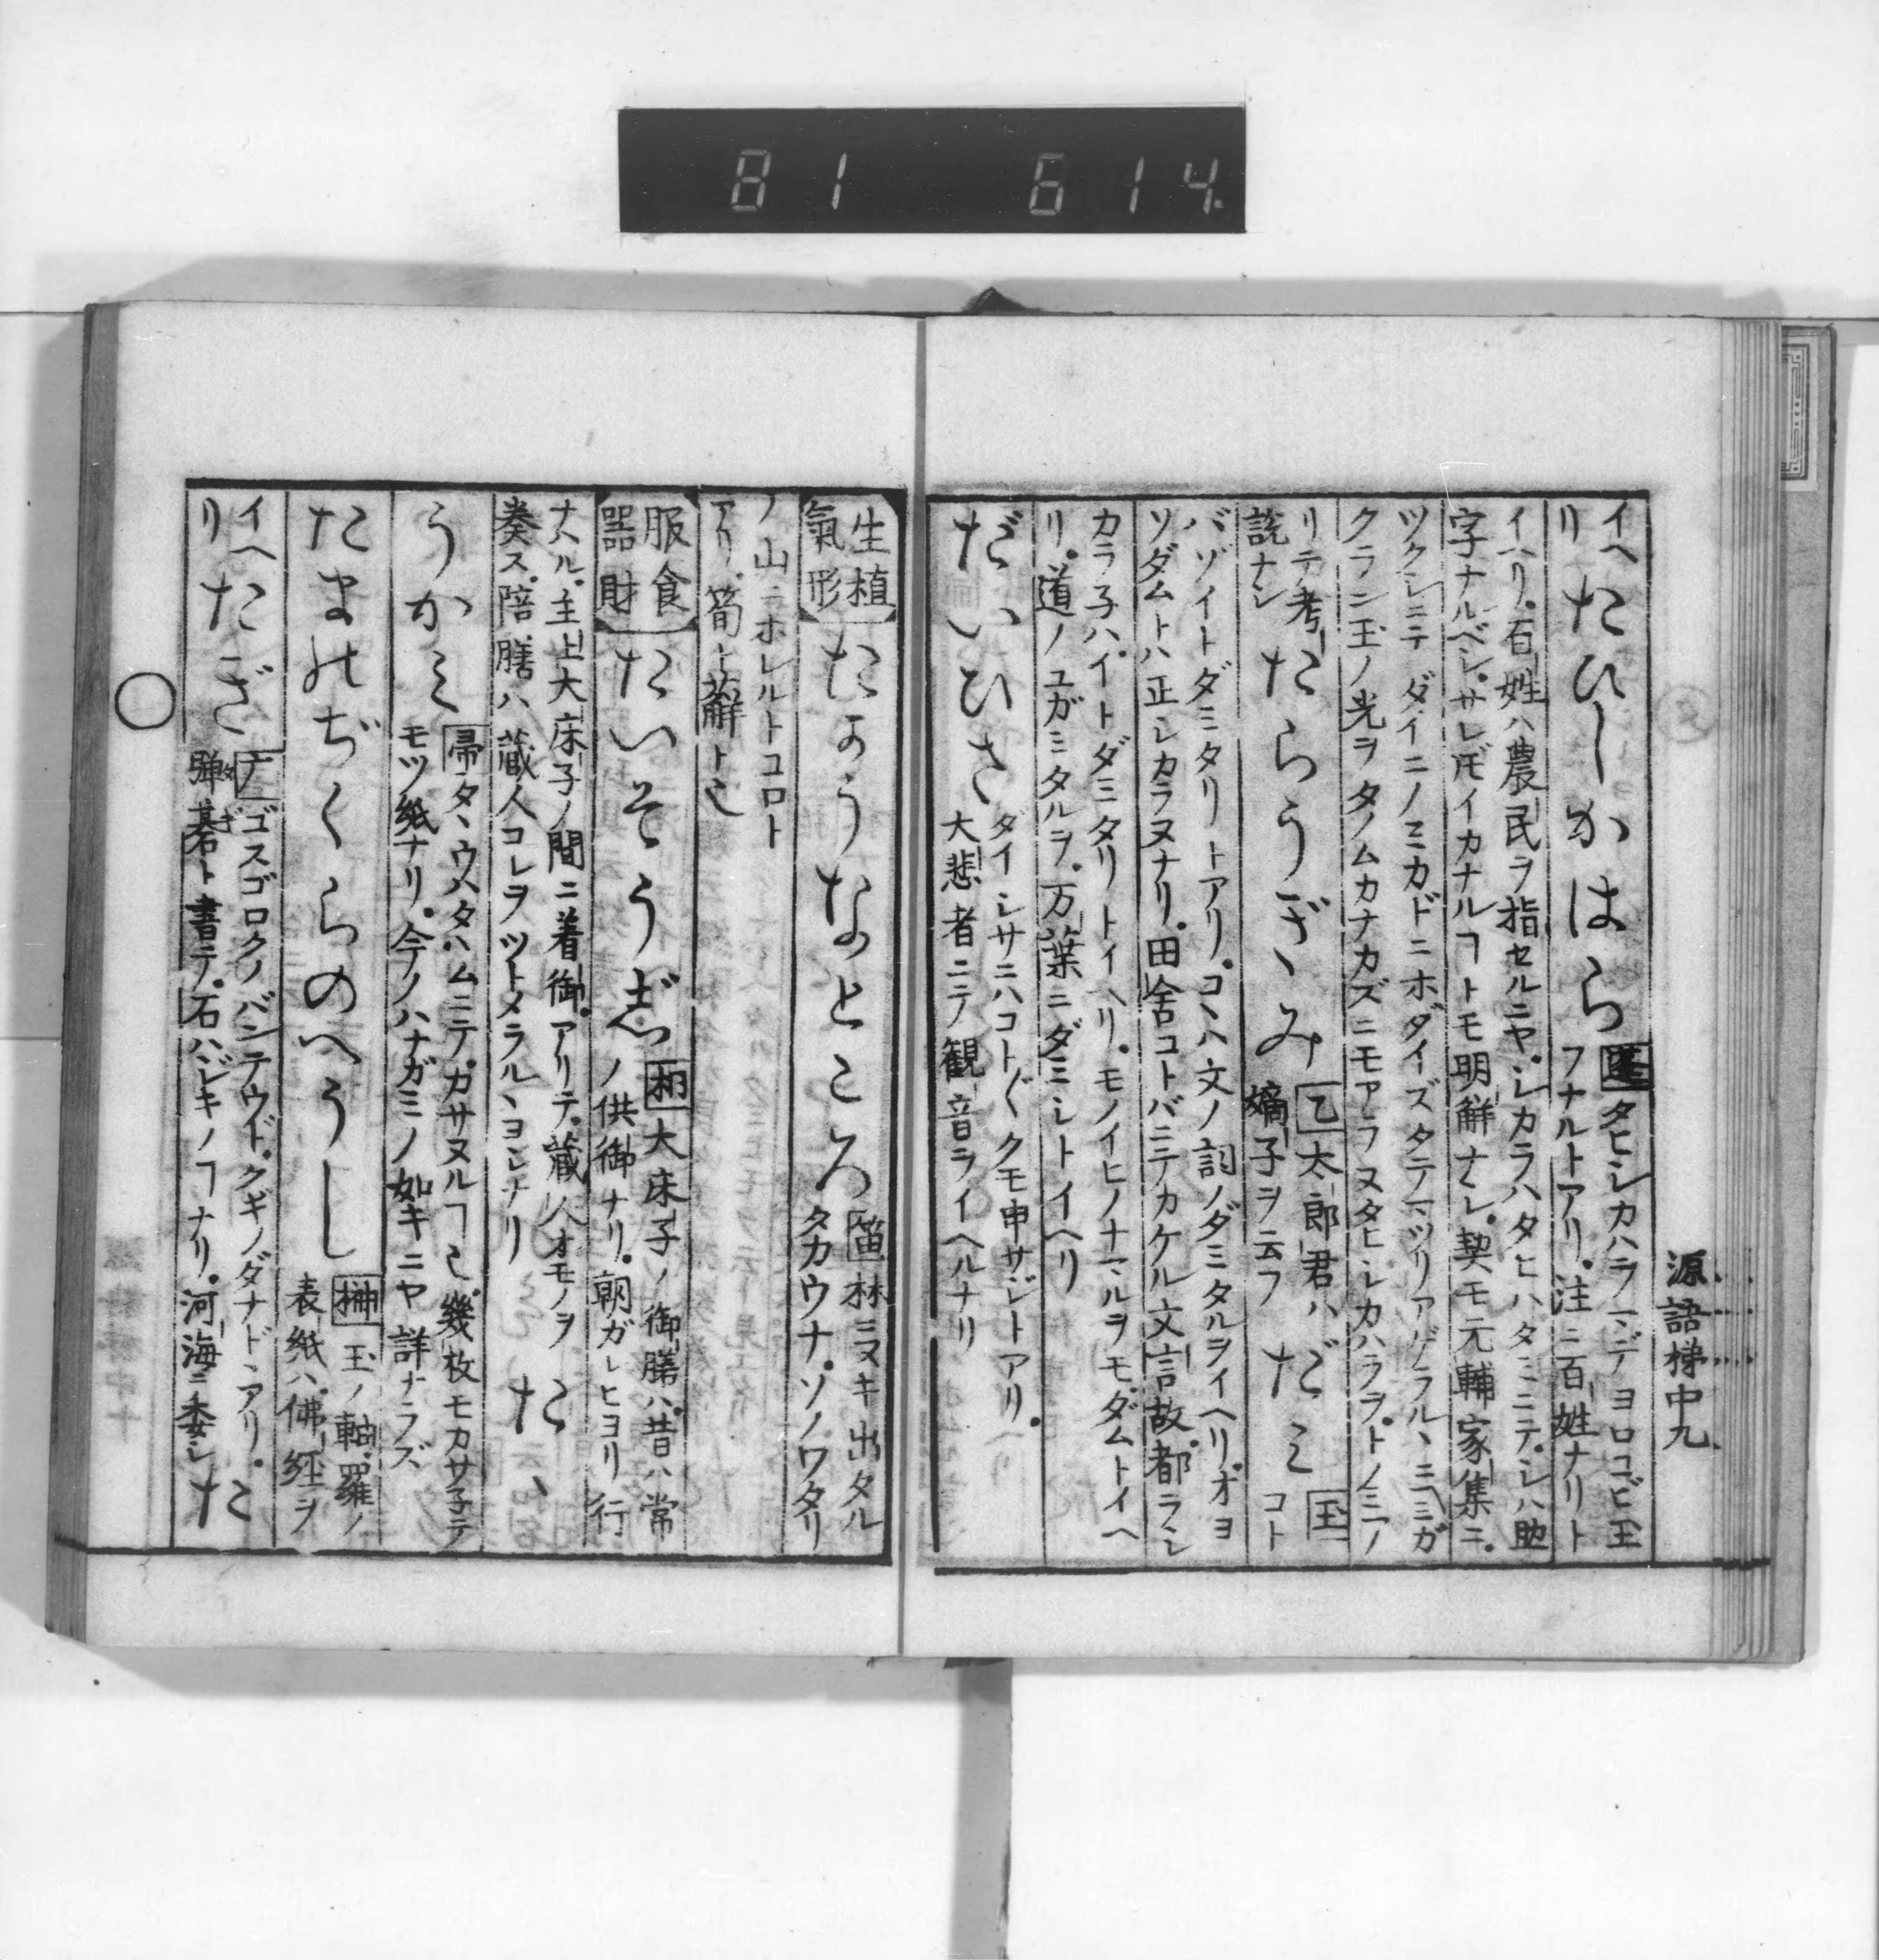 81 614
源語梯中九
イヘ
リ
たひしかはら
蓬タヒシカハラマデヨロコビ玉
フナルトアリ。注ニ百姓ナリト
イヘリ。百姓ハ農民ヲ指セルニヤ。シカラハタヒハタミニテ。シハ助
字ナルベシ。サレ𪜈イカナルヿトモ明解ナシ。契モ元輔家集ニ。
ツクシニテダイニノミカドニホダイズタテマツリアゲラルヽニミガ
クラン玉ノ光ヲタノムカナカズニモアラヌタヒシカハラヲ。トノミノ
リテ考
説ナシ
たらうぎみ
乙太郎君ハ
嫡子ヲ云フ
だミ
玉
コト
バゾイトダミタリトアリ。コヽハ文ノ詞ノダミタルヲイヘリ。オヨ
ソダムトハ正シカラヌナリ。田舎コトバニテカケル文言故。都ラシ
カラ子ハ。イトダミタリトイヘリ。モノイヒノナマルヲモ。ダムトイヘ
リ。道ノユガミタルヲ。万葉ニダミシトイヘリ
だいひさ
ダイシサニハコト〴〵クモ申サジトアリ。
大悲者ニテ観音ヲイヘルナリ
生植
氣形
たかうなところ
笛林ニヌキ出タル
タカウナ。ソノワタリ
ノ山ニホレルトコロト
アリ。筍ト薢ト也
服食
器財
たいそうじ
桐大床子ノ御膳ハ。昔ハ常
ノ供御ナリ。朝ガレヒヨリ行
ナハル。主上大床子ノ間ニ着御。アリテ。蔵人オモノヲ
奏ス。陪膳ハ蔵人コレヲツトメラルヽヨシナリ
たヽ
うかミ
帚タヽウハタヽムニテ。カサヌルヿ也。幾枚モカサ子テ
モツ紙ナリ。今ノハナガミノ如キニヤ詳ナラズ
たまのぢくらのへうし
榊玉ノ軸。羅ノ
表紙ハ。佛経ヲ
イヘ
リ
たぎ
ゴスゴロクノバンテウド。タギノグナド、アリ。
弾碁ト書テ。石ハジキノヿナリ。河海ニ委シ
た